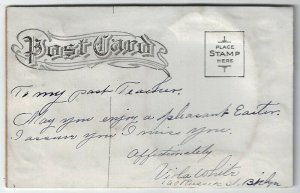 Post Card
PLACE
STAMP
HERE
To my past Teacher.
May you enjoy a pleasant Easter.
I assure you I miss you.
Affectionately,
Viola White
Bklyn